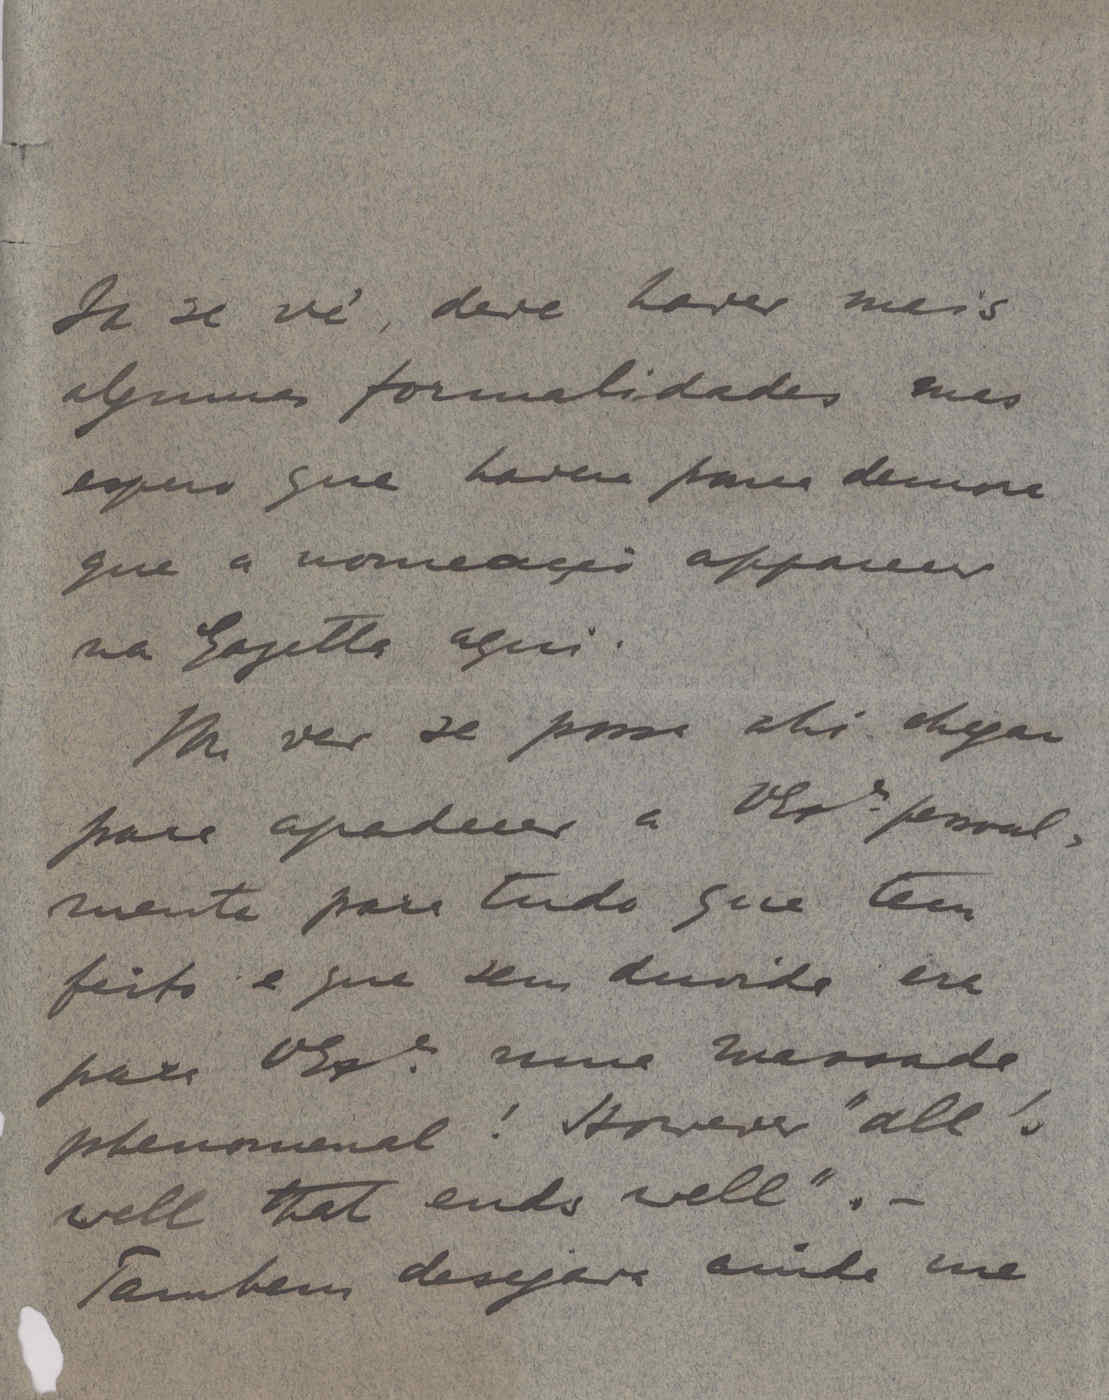 Ja se vê, deve haver mais
algumas formalidades mas
espero que haverá pouca demora
que a nomeação apparecer
na Gazetta aqui.
Vou ver se posso ahi chegar
para agradecer a VExª pessoal-
mente para tudo que tem
feito e que sem duvida era
para VExª uma massada
phenomenal! However "all's
well that ends well". –
Tambem desejava ainda me